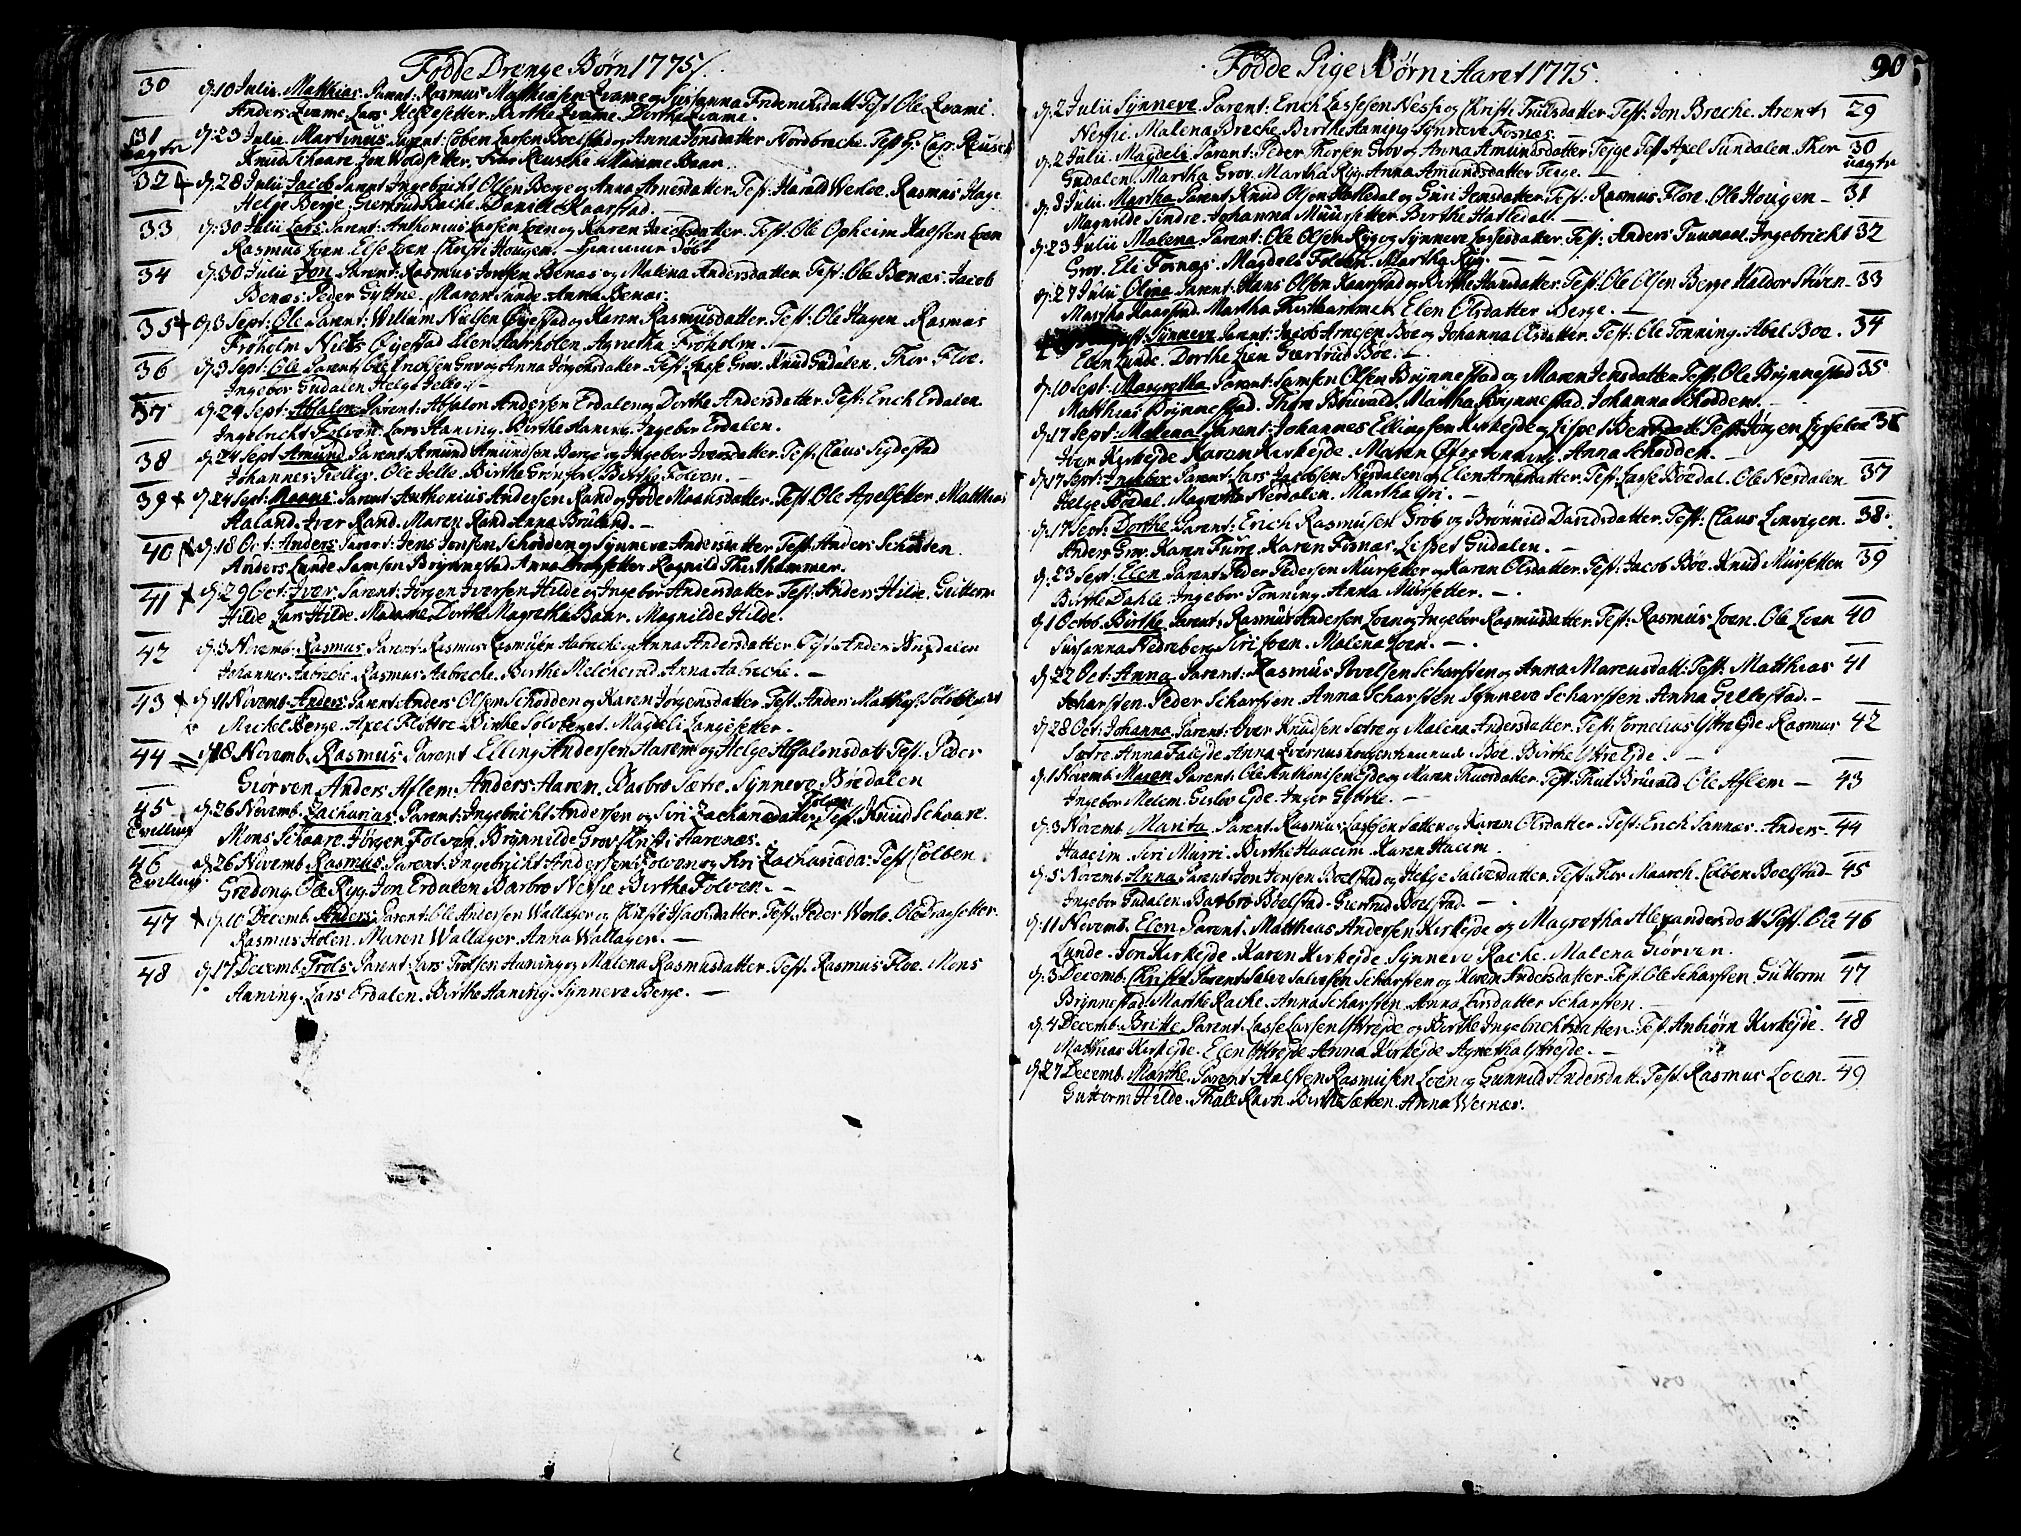 Fødde Drenge Børn 1775.
30 d. 10 Julii Matthias. Parent: Rasmus Mathiasen Qvame og Susanna Friderichsdatt. Test. Ole Qvame.
Anders Qvame Lars Birthe Qvame. Dorthe Qvame.
31 d. 23 Julii Martinus. Parent: Colben Larsen Boelstad og Anna Jonsdatter Nordbreche. Test. Hr. Cap. Reusch
uægte
Knud Schaare. Jon Woldsetter. Frue Reusche. Mamme Baar.
32 d. 28 Julii Jacob Parent Ingebricht Olsen Berge og Anna Arnesdatter. Test: Harald Weloe. Rasmus Hage
Helge Berge. Giertrud Rache. Danille Kaarstad.
33 d. 30 Julii Lars. Parent: Anthonius Lassen Loen og Karen Jacobsdatter. Test. Ole Opheim. Halsten Loen
Rasmus Loen. Else Loen. Christi Hougen. Hjemme Døbt
34 d. 30 Julii Jon Parent: Rasmus Jonsen Benæs og Malena Andersdatter Test: Ole Benæs. Jacob
Benæs. Peder Gyttne. Maren Sunde. Anna Benæs.
35 d. 3 Sept: Ole Parent: Willum Nielsen Øyestad og Karen Rasmusdatter. Test: Ole Hagen. Rasmus
Frøholm Niels Øyestad Elen Aarholen. Agnetha Frøholm.
36 d. 3 Sept: Ole Parent: Ole Erichsen Grov og Anna Jørgensdatter. Test: Lasse Grov. Knud Gudalen. Thor Floe.
Ingebor Gudalen Helge Jelle.
37 d. 24 Sept: Absalon Parent: Absalon Andersen Erdalen og Dorthe Andersdatter. Test: Erich Erdalen.
Ingebricht Folven. Lars Haning. Birthe Haning. Ingebor Erdalen.
38 d. 24 Sept Amund Parent: Amund Amundsen Berge og Ingebor Iversdatter. Test: Claus Sigdestad
Johannes Fiellje. Ole Jelle. Birthe Grønfor. Birthe Folven.
39 d. 24 Sept: Maans. Parent: Anthonius Andersen Rand og Jode Maansdatter. Test. Ole Apelsetter. Matthias
Haland. Iver Rand. Maren Rand. Anna Bruland.
40 d. 18 Oct: Anders Parent: Jens Jonsen Schodden og Synneve Andersdatter Test. Anders Schodden.
Anders Lunde Samsen Brynnestad Anna Ragnild Thisthammer.
41 d. 29 Oct: Iver Parent: Jørgen Iversen Hilde og Ingebor Andersdatter Test: Anders Hilde. Guttorm
Hilde Lars Hilde. Madame Dorthe Magretha Baar. Magnilde Hilde.
42 d. 3 Novemb. Rasmus Parent: Rasmus Rasmusen Aabreche og Anna Andersdatter. Test: Anders Bredalen
Johannes Aabreche. Rasmus Aabreche. Birthe Melcheved Anna Aabreche.
43 d. 11 Novemb. Anders Parent: Anders Olsen Schodden og Karen Jørgensdatter. Test: Anders Matthis. Solvberget
Michel Berge. Axel Flettre. Birthe Solvberget. Magdeli Langesetter.
44 d. 18 Novemb. Rasmus. Parent Elling Andersen Harem og Helge Absalonsdatt. Test. Peder
Giørven Anders Aflem. Anders Harem. Barbro Sætre. Synneve Bredalen
45 d. 26 Novemb. Zacharias. Parent: Ingebricht Andersen og Siri Zachariædatter Folven Test: Knud Schaare.
Tvelling
Mons Schaare. Jørgen Folven. Brynnilde Grov. Christi Harenæs.
46 d. 26 Novemb. Rasmus. Parent. Ingebricht Andersen Folven og Siri Zachariæda: Test. Colben
Tvelling
Greding. Ole Ryg. Jon Erdalen. Barbro Nessie. Birthe Folven.
47 d. 10 Decemb. Anders. Parent: Ole Andersen Wallager og Christi Isacsdatter. Test. Peder Werlo. Ole Dragsetter.
Rasmus Holen. Maren Wallager. Anna Wallager.
48 d. 17 Decemb. Trols Parent: Lars Trolsen Haning og Malena Rasmusdatter. Test. Rasmus Floe. Mons
Haning. Lars Erdalen. Birthe Haning. Synneve Berge.
Fødde Pige Børn i Aaret 1775.
90
d. 2 Julii Synneve. Parent: Erich Lassesen Nessie og Christi Trulsdatter. Test: Jon Breche. Arent 29
Nessie. Malena Breche. Birthe Haning Synneve Fosnæs.
d. 2 Julii. Magdeli Parent: Peder Thorsen Grov og Anna Amundsdatter Tejge. Test Axel Sundalen. Thor 30
uægte
Gudalen. Martha Grov. Martha Ryg. Anna Amundsdatter Terge.
d. 8 Julii. Martha Parent: Knud Olsen Hatledal og Guri Jensdatter. Test: Rasmus Floe. Ole Hougen 31
Magnilde Sindre. Johanna Muursetter. Birthe Hatledal.
d. 23 Julii Malena Parent: Ole Olsen Ryg og Synneve Lassesdatter. Test: Anders Tunnaal. Ingebricht 32
Grov. Eli Fosnæs. Magdeli Folven. Martha Ryg.
d. 27 Julii Olina Parent: Hans Olsen Kaarstad og Birthe Hansdatter. Test: Ole Olsen Berge Haldor Støven 33
Martha Kaarstad. Martha Thisthammer. Elen Olsdatter Berge.
Synneve Parent: Jacob Arnesen Boe og Johanna Olsdatter. Test: Ole Tonning. Abel Boe. 34
Elen Lunde. Dorthe Loen Giertrud Bøe.
d. 10 Sept: Magretha Parent: Samsen Olsen Brynnestad og Maren Jensdatter Test: Ole Brynnestad 35
Matthias Brynnestad. Thom Bruvald. Martha Brynnestad. Johanna Schodden.
d. 17 Sept: Malena Parent: Johannes Ellingsen Kirkejde og Lispet Test. Jørgen 36
Iver Kirkejde Karen Kirkejde. Maren Øfretonning. Anna Schodden.
d. 17 Sept: Ingebor Parent: Lars Jacobsen Nerdalen og Elen Arnesdatter. Test: Lasse Bødal. Ole Nerdalen. 37
Helge Bødal. Magrethe Nerdalen. Martha Gri.
d. 17 Sept: Dorthe Parent: Erich Rasmusen Grov og Brønnild Davidsdatter. Test: Claus Linvigen. 38
Anders Grov. Karen Furre. Karen Fosnæs. Lispet Gudalen.
d. 23 Sept: Elen Parent: Peder Pedersen Mursetter og Karen Olsdatter. Test: Jacob Bøe. Knud Mursetter 39
Birthe Dahle. Ingebor Tonning. Anna Mursetter.
d. 1 Octob. Birthe Parent: Rasmus Andersen Loen og Ingebor Rasmusdatter. Test: Rasmus Loen. Ole Loen 40
Sussanna Nedreberg. Siri Loen. Malena Loen.
d. 22 Oct: Anna Parent: Rasmus Povelsen Scharsten og Anna Marcusdatt: Test. Matthias 41
Scharsten. Peder Scharsten. Anna Scharsten Synneve Scharsten. Anna Gillestad.
d. 28 Oct: Johanna Parent: Iver Knudsen Sætre og Malena Andersdatter. Test: Cornelius Ystreejde. Rasmus 42
Sætre. Anna Falejde. Anna Boe. Birthe Ystreejde.
d. 1 Novemb. Maren Parent: Ole Anthonisen Ejde og Maren Truesdatter. Test: Thue Bruvald Ole Aflem 43
Ingebor Melem. Giøsbor Ejde. Inger Gyttre.
d. 3 Novemb. Marita. Parent: Rasmus Larssen Sætten og Karen Olsdatter. Test: Erich Sannæs. Anders 44
Haaeim. Siri Murri. Birthe Haaeim. Karen Haeem.
d. 5 Novemb. Anna Parent: Jon Jensen Boelstad og Helge Salvesdatter. Test. Thor Maarch. Colben Boelstad 45
Ingebor Gudalen. Barbro Bøelstad. Giertrud Bøelstad.
d. 11 Novemb. Elen Parent: Matthias Andersen Kirkejde og Magretha Alexandersdatt. Test. Ole 46
Lunde. Jon Kirkejde. Karen Kirkejde Synneve Rache. Malena Giørven.
d. 3 Decemb. Christi Parent: Salve Salvesen Scharsten og Karen Andersdatter. Test. Ole Scharsten. Guttorm 47
Brynnestad. Marthe Rache. Anna Scharsten. Anna Larsdatter Scharsten.
d. 4 Decemb. Britte Parent. Lasse Larsen Ystrejde og Birthe Ingebrichtsdatter. Test. Anbiørn Kirkejde. 48
Matthias Kirkejde. Elen Ystrejde Anna Kirkejde Agnetha Ystrejde.
d. 27 Decemb. Marthe. Parent: Halsten Rasmusen Loen og Gunnild Andersdatt. Test. Rasmus Loen. 49
Guttorm Hilde. Thale Ravn. Birthe Sætten. Anna Wesnæs.